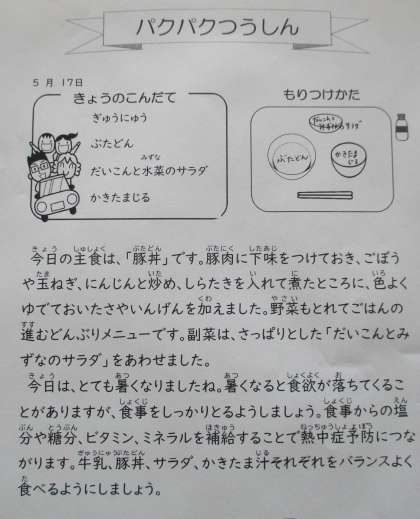 パクパクつうしん
5月17日
きょうのこんだて
もりつけかた
ぎゅうにゅう
ぶたどん
だいこんと水菜のサラダ
かきたまじる
ぶたどん
かきたまじる
今日の主食は、「豚丼」です。豚肉に下味をつけておき、ごぼう
や玉ねぎ、にんじんと炒め、しらたきを入れて煮たところに、色よく
ゆでておいたさやいんげんを加えました。野菜もとれてごはんの
進むどんぶりメニューです。副菜は、さっぱりとした「だいこんとみ
ずなのサラダ」をあわせました。
今日は、とても暑くなりましたね。暑くなると食欲が落ちてくるこ
とがありますが、食事をしっかりとるようしましょう。食事からの塩
分や糖分、ビタミン、ミネラルを補給することで熱中症予防につな
がります。牛乳、豚丼、サラダ、かきたま汁それぞれをバランスよく
食べるようにしましょう。